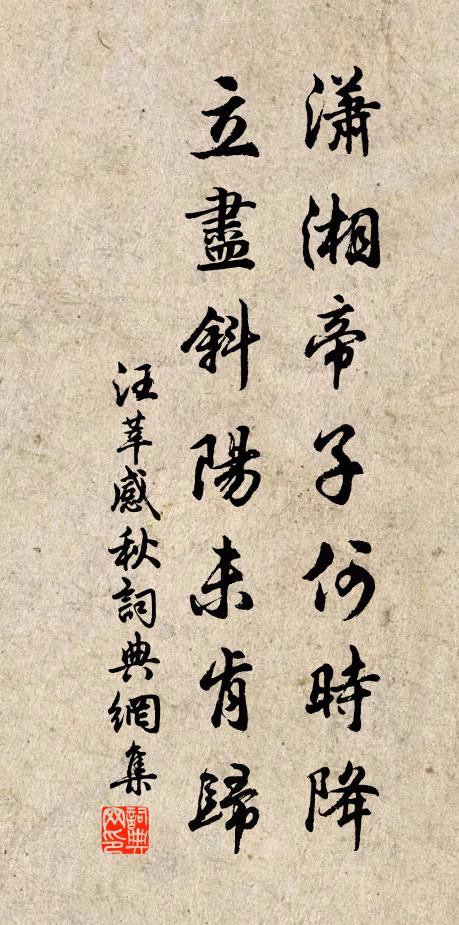 瀟湘帝子何時降
立盡斜陽未肯歸
汪莘感秋詞典網集
詞典网印